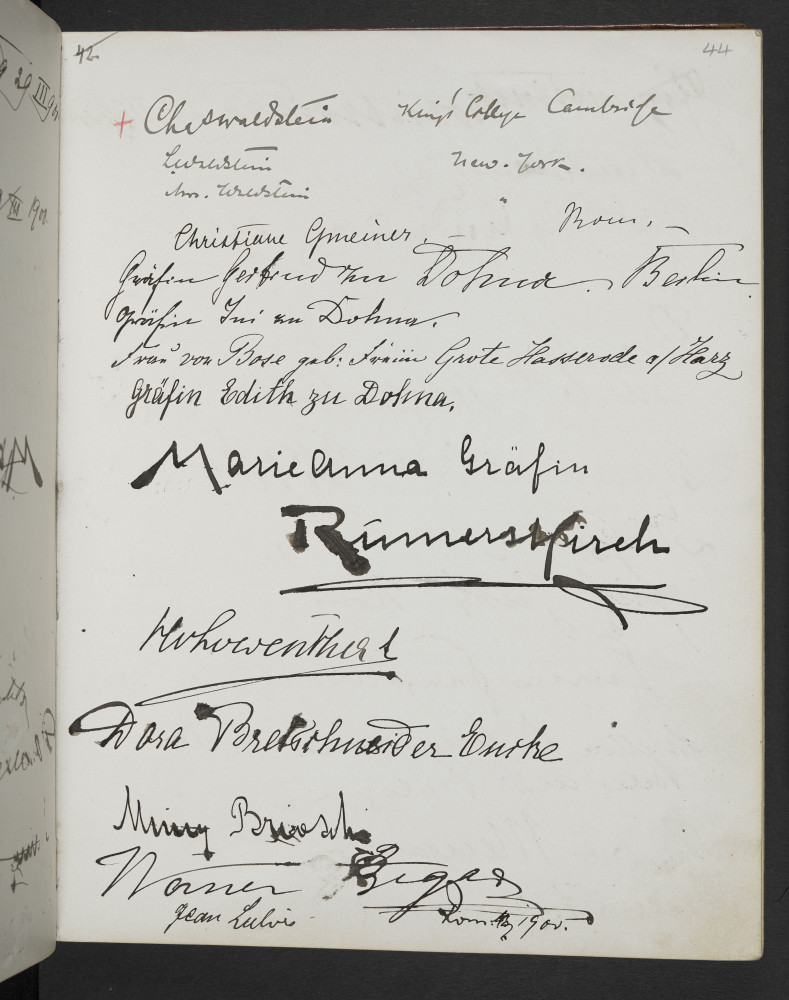 42 44
+ Chs Waldstein King's College Cambridge
L Waldstein New-York.
Mrs. Waldstein "
Christiane Gmeiner. – Rom. –
Gräfin Gertrud zu Dohna. Berlin.
Gräfin Ini zu Dohna.
Frau von Bose geb: Freiin Grote Hasserode a/Harz
Gräfin Edith zu Dohna.
Marieanna Gräfin
Rumerskirch
Hohowenthal
Dora Bretschneider Encke
Mimy Brioschi
Werner Begas
Jean Lulvès Rom. 1900.